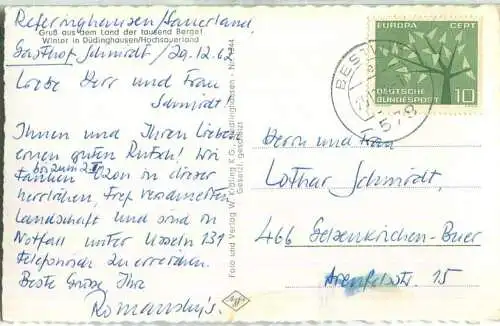 Referinghausen/Sauerland.
Gruß aus dem Land der tausend Berge!
Winter in Düdinghausen/Hochsauerland
Gasthof Schmidt/29.12.62
Liebe Herr und Frau
Schmidt!
Ihnen und Ihren Lieben
einen guten Rutsch! Wir
bis zum 2.
tanken Ozon in dieser
herrlichen, tief verschneiten
Landschaft und sind im
Notfall unter Usseln 131
telefonisch zu erreichen.
Beste Grüße Ihre
Romansky's.
Foto und Verlag W. Kräling K.G.
Gesetzl. geschützt
EUROPA CEPT
DEUTSCHE
BUNDESPOST 10
BESTWIG
578
Herrn und Frau
Lothar Schmidt,
466 Gelsenkirchen-Buer
15